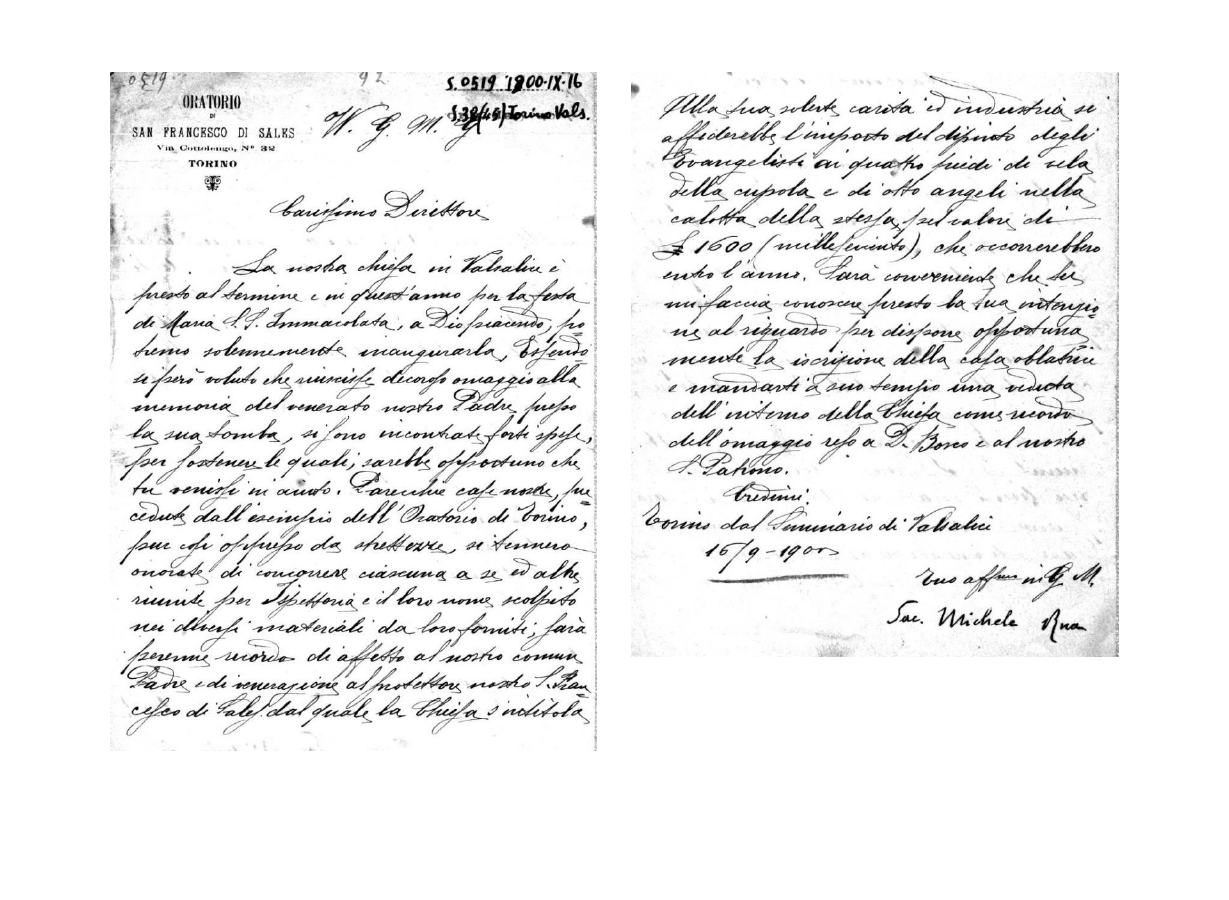 0519.
92
S. 0519 1900-IX-16
S.38(45) Torino Vals.
ORATORIO
DI
SAN FRANCESCO DI SALES
Via Cottolengo, N° 32
TORINO
W. G. M. G.
Carissimo Direttore
La nostra chiesa in Valsalice è
presto al termine e in quest'anno per la festa
di Maria S.S. Immacolata, a Dio piacendo, po-
tremo solennemente inaugurarla. Essendo-
si però voluto che riuscisse decoroso omaggio alla
memoria del venerato nostro Padre presso
la sua tomba, si sono incontrate forti spese,
per sostenere le quali, sarebbe opportuno che
tu venissi in aiuto. Parecchie case nostre, pre-
cedute dall'esempio dell'Oratorio di Torino,
pur così oppresso da strettezze, si tennero
onorate di concorrere ciascuna a se ed altre
riunite per Ispettoria e il loro nome scolpito
nei diversi materiali da loro forniti, sarà
perenne ricordo di affetto al nostro comun
Padre e di venerazione al protettore nostro S. Fran-
cesco di Sales dal quale la Chiesa s'intitola
Alla tua solerte carità ed industria si
affiderebbe l'importo del dipinto degli
Evangelisti ai quattro piedi di vela
della cupola e di otto angeli nella
calotta della stessa, pel valore di
£ 1600 (milleseicento), che occorrerebbero
entro l'anno. Sarà conveniente che tu
mi faccia conoscere presto la tua intenzio-
ne al riguardo per disporre opportuna
mente la iscrizione della casa oblatrice
e mandarti a suo tempo una veduta
dell'interno della Chiesa come ricordo
dell'omaggio reso a D. Bosco e al nostro
S. Patrono.
Credimi.
Torino dal Seminario di Valsalice
16/9-1900
Tuo affmo in G. M.
Sac. Michele Rua